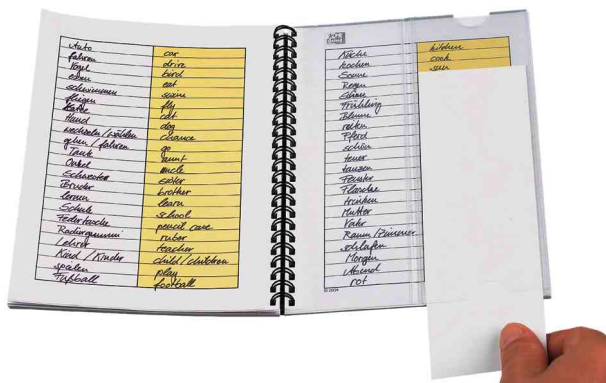 Auto car
fahren drive
Vogel bird
essen eat
schwimmen swim
fliegen fly
Katze cat
Hund dog
wechseln / wählen
gehen / fahren go
Tante aunt
Onkel uncle
Schwester sister
Bruder brother
lernen learn
Schule school
Federtasche pencil case
Radiergummi ruber
Lehrer teacher
Kind / Kinder child / children
spielen play
Fußball football
Küche kitchen
kochen cook
Sonne sun
Regen
Frühling
Blume
reiten
Pferd
schön
teuer
tanzen
Fenster
Flasche
trinken
Mutter
Vater
Raum / Zimmer
schlafen
Morgen
Abend
rot